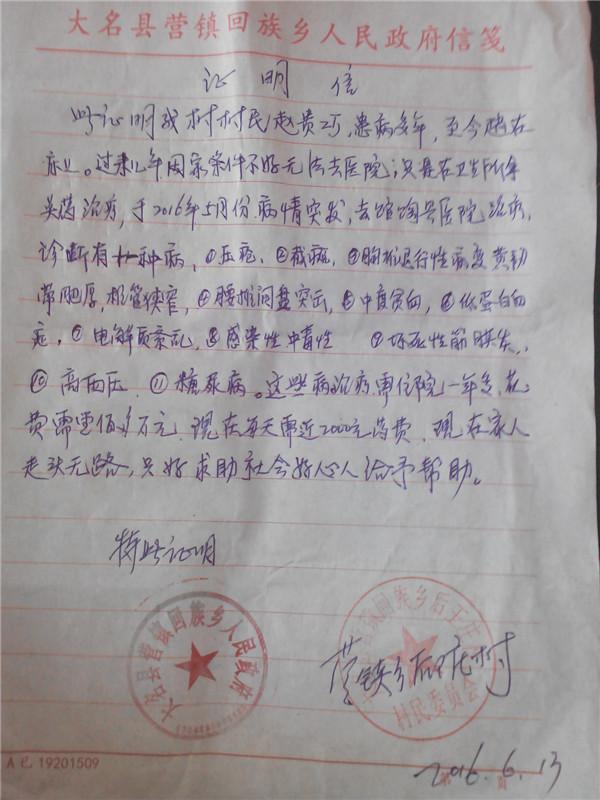 大名县营镇回族乡人民政府信笺
证明信
此证明我村村民赵贵巧,患病多年,至今瘫在
床上。过来几年因家条件不好无法去医院;只是在卫生所拿
些药治疗,于2016年5月份病情突发,去馆陶县医院治疗,
诊断有十一种病,①压疮、②截瘫、③胸椎退行性病变黄韧
带肥厚,椎管狭窄,④腰椎间盘突出,⑤中度贫血,⑥低蛋白血
症,⑦电解质紊乱,⑧感染性中毒性 ⑨坏死性筋膜炎,
⑩高血压、⑪糖尿病。这些病治疗需住院一年多,花
费需壹佰多万元,现在每天需近2000元消费,现在家人
走头无路,只好求助社会好心人给予帮助。
特此证明
大名县营镇回族乡人民政府
营镇乡后王庄村
村民委员会
2016.6.13
A已 19201509
第 页